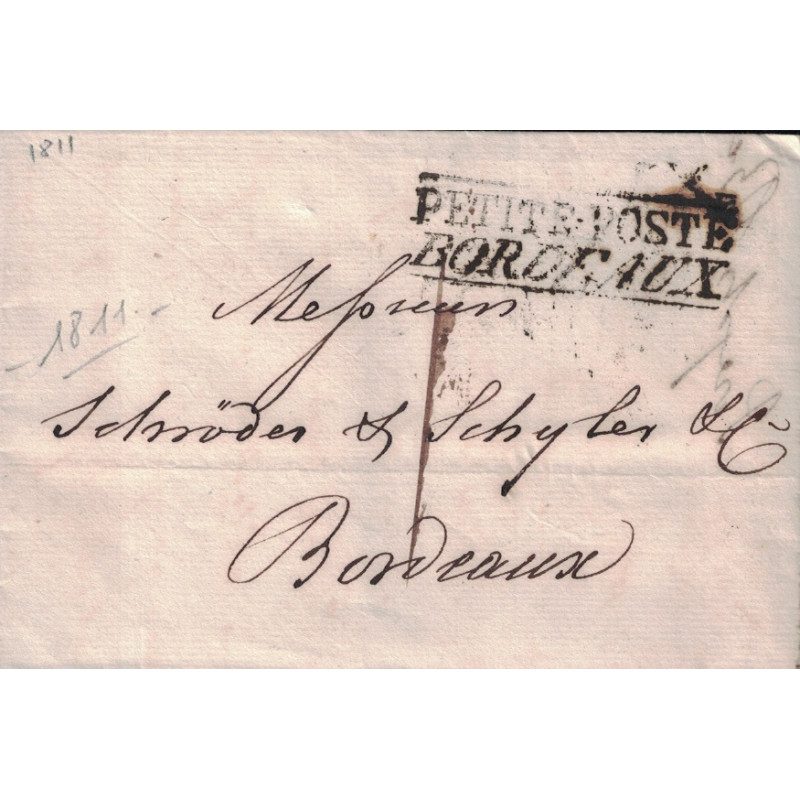 1811
PETITE·POSTE
BORDEAUX
Messieurs
- 1811. -
Schröder & Schyler & C
Bordeaux